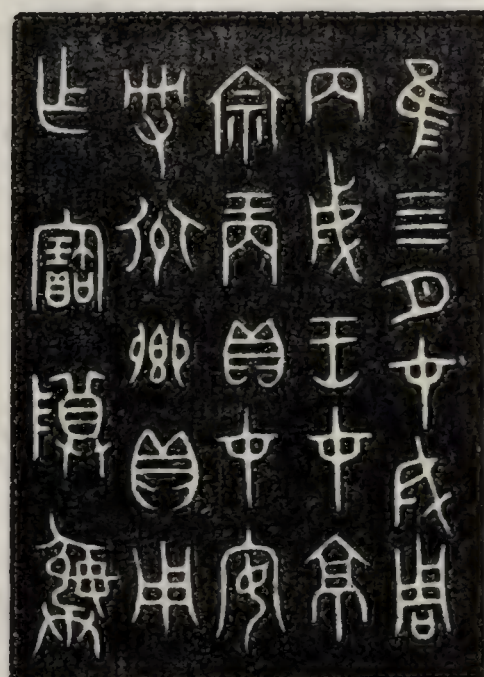 隹四月才成周
丙戌王才京
宗商貝才安
卿貝用
乍寶𬯚彝